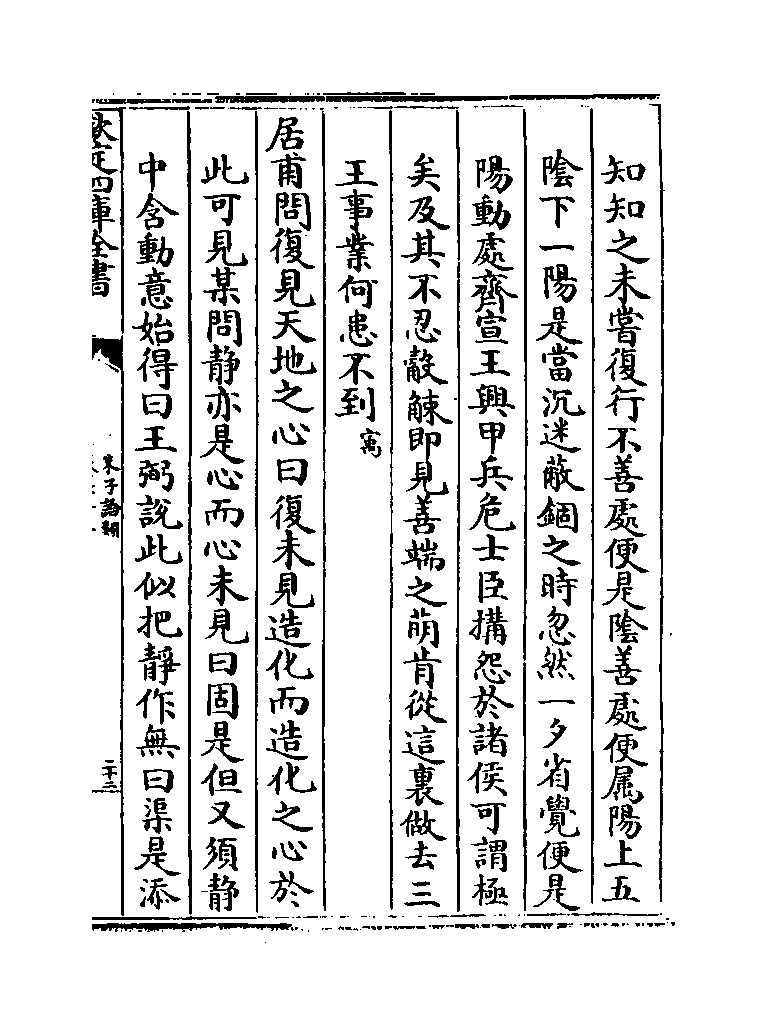 知知之未嘗復行不善處便是隂善處便属陽上五
隂下一陽是當沉迷蔽錮之時忽然一夕省覺便是
陽動處齊宣王興甲兵危士臣搆怨於諸侯可謂極
矣及其不忍觳觫即見善端之萌肯從這裏做去三
王事業何患不到寓
居甫問復見天地之心曰復未見造化而造化之心於
此可見某問静亦是心而心未見曰固是但又須静
中含動意始得曰王弼說此似把靜作無曰渠是添
欽定四庫全書
朱子語類
二十二